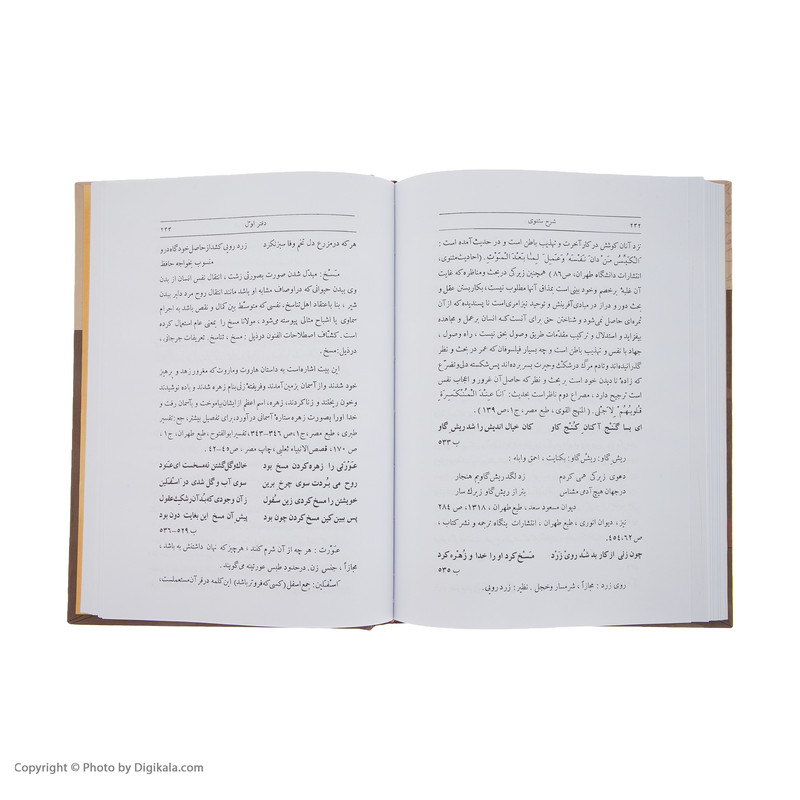 ۲۳۲ شرح مثنوی
نزد آنان کوشش در کار آخرت و تهذیب باطن است و در حدیث آمده است :
اَلْکَیِّسُ مَنْ دانَ نَفْسَهُ وَ عَمِلَ لِما بَعْدَ الْمَوْتِ. (احادیث مثنوی،
انتشارات دانشگاه طهران، ص ۸۶) همچنین زیرکی در بحث و مناظره که غایت
آن غلبه بر خصم و خود بینی است بمذاق آنها مطلوب نیست، بکار بستن عقل و
بحث دور و دراز در مبادی آفرینش و توحید نیز امری است نا پسندیده که از آن
ثمره‌ای حاصل نمی‌شود و شناختن حق برای آنست که انسان بر عمل و مجاهده
بیفزاید و استدلال و ترکیب مقدّمات طریق وصول بحق نیست ، راه وصول ،
جهاد با نفس و تهذیب باطن است و چه بسیار فیلسوفان که عمر در بحث و نظر
گذرانیده‌اند و تا دم مرگ در شک و حیرت بسر برده‌اند پس شکسته دلی و تضرّع
که زادهٔ نا دیدن خود است بر بحث و نظر که حاصل آن غرور و اعجاب نفس
است ترجیح دارد . مصراع دوم ناظر است بحدیث: اَنَا عِنْدَ الْمُنْکَسِرَةِ
قُلُوبُهُمْ لِاَجْلی . (المنهج القوی ، طبع مصر، ج۱، ص ۱۳۹) .
ای بسا گنج آکنان کنج کاو کان خیال اندیش را شد ریش گاو
ب ۵۳۳
ریش گاو: ریش گاو: بکنایت ، احمق و ابله :
دعوی زیرکی همی کردم زد لگد ریش گاوم هنجار
در جهان هیچ آدمی مشناس بتر از ریش گاو زیرک سار
دیوان مسعود سعد ، طبع طهران ، ۱۳۱۸ ، ص ۲۸۴
نیز، دیوان انوری ، طبع طهران ، انتشارات بنگاه ترجمه و نشر کتاب ،
ص ۴۵۴،۶۲.
چون زنی از کار بد شد روی زرد مسخ کرد او را خدا و زهره کرد
ب ۵۳۵
روی زرد : مجازاً ، شرمسار و خجل . نظیر : زرد رویی .
دفتر اوّل ۲۳۳
هر که در مزرع دل تخم وفا سبز نکرد زرد رویی کشد از حاصل خود گاه درو
منسوب بخواجه حافظ
مَسْخ : مبدّل شدن صورت بصورتی زشت ، انتقال نفس انسان از بدن
وی ببدن حیوانی که در اوصاف مشابه او باشد مانند انتقال روح مرد دلیر ببدن
شیر ، بنا باعتقاد اهل تناسخ، نفسی که متوسّط بین کمال و نقص باشد به اجرام
سماوی یا اشباح مثالی پیوسته می‌شود ، مولانا مسخ را بمعنی عام استعمال کرده
است. کشّاف اصطلاحات الفنون در ذیل : مسخ ، تناسخ . تعریفات جرجانی ،
در ذیل: مسخ .
این بیت اشاره است به داستان هاروت و ماروت که مغرور زهد و پرهیز
خود شدند و از آسمان بزمین آمدند و فریفتهٔ زنی بنام زهره شدند و باده نوشیدند
و خون ریختند و زنا کردند، زهره، اسم اعظم از ایشان بیاموخت و بآسمان رفت و
خدا او را بصورت زهره ستارهٔ آسمانی در آورد. برای تفصیل بیشتر، جع: تفسیر
طبری ، طبع مصر، ج۱، ص ۳۴۶-۳۴۳، تفسیر ابوالفتوح، طبع طهران، ج۱،
ص ۱۷۰، قصص الانبیاء ثعلبی، چاپ مصر ، ص ۴۵-۴۲ .
عورتی را زهره کردن مسخ بود خاک و گل گشتن نه مسخست ای عنود
روح می بردت سوی چرخ برین سوی آب و گل شدی در اسفلین
خویشتن را مسخ کردی زین سفول زآن وجودی که بد آن رشک عقول
پس ببین کین مسخ کردن چون بود پیش آن مسخ این بغایت دون بود
ب ۵۲۹-۵۳۶
عَوْرَت : هر چه از آن شرم کنند ، هر چیز که نهان داشتنش به باشد ،
مجازاً ، جنس زن . در حدود طبس عورتینه می‌گویند .
اَسْفَلین: جمع اسفل (کسی که فروتر باشد) این کلمه در قرآن مستعملست،
Copyright © Photo by Digikala.com